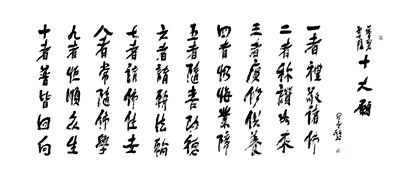 普賢菩薩
十大願
一者禮敬諸佛
二者稱讚如來
三者廣修供養
四者懺悔業障
五者隨喜功德
六者請轉法輪
七者請佛住世
八者常隨佛學
九者恒順眾生
十者普皆回向